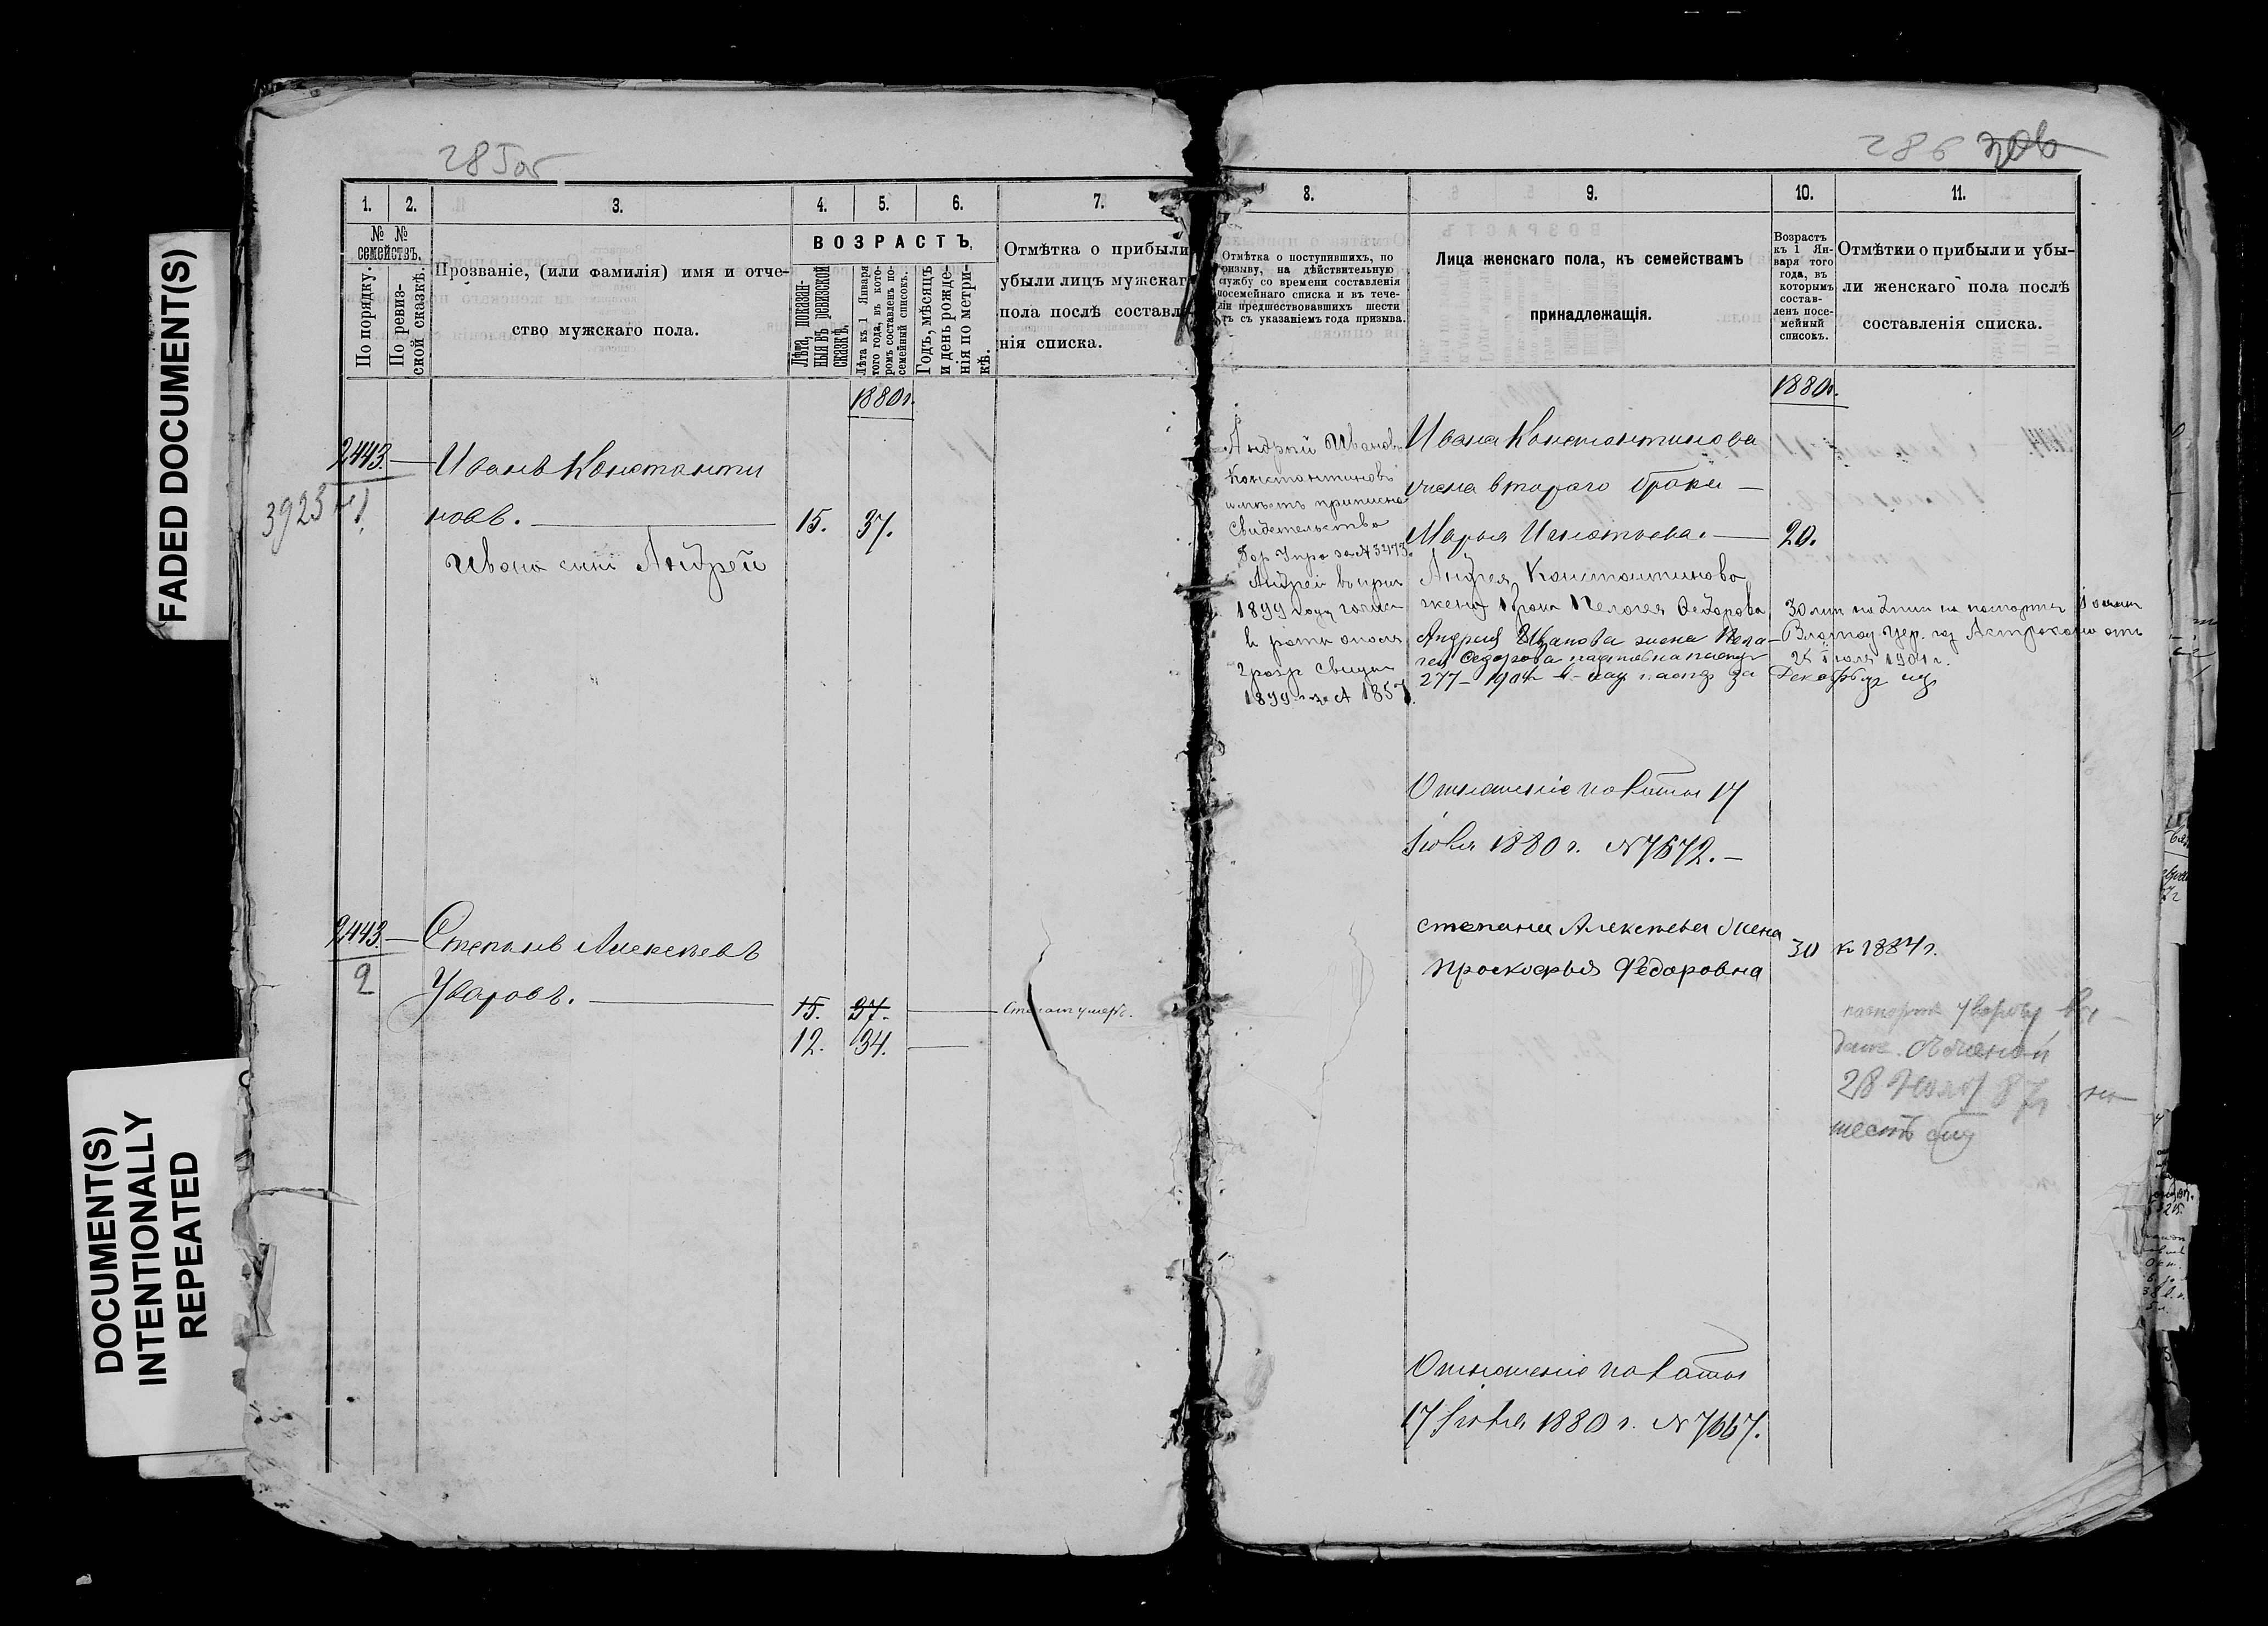 FADED DOCUMENT(S)
DOCUMENT(S)
INTENTIONALLY
REPEATED
285об
1.
2.
3.
4.
5.
6.
7.
№ №
семействъ.
По порядку.
По ревиз-
ской сказкѣ.
Прозваніе, (или фамилія) имя и отче-
ство мужскаго пола.
ВОЗРАСТЪ,
Лѣта, показан-
ныя въ ревизской
сказкѣ.
Лѣта къ 1 Января
того года, въ кото-
ромъ составленъ по-
семейный списокъ.
Годъ, мѣсяцъ
и день рожде-
нія по метри-
кѣ.
Отмѣтка о прибыли
убыли лицъ мужскаг
пола послѣ составл
нія списка.
1880г.
2443.
1
3923
Иванъ Константи
новъ.
15.
37.
Ивана сынъ Андрей
2443.
2
Степанъ Алексѣевъ
Уваровъ.
15.
37.
Степан умеръ.
12.
34.
286 306
8.
9.
10.
11.
Отмѣтка о поступившихъ, по
ризыву, на дѣйствительную
службу со времени составленія
посемейнаго списка и въ тече-
ніи предшествовавшихъ шести
тъ съ указаніемъ года призыва.
Лица женскаго пола, къ семействамъ
принадлежащія.
Возрастъ
къ 1 Ян-
варя того
года, въ
которымъ
состав-
ленъ посе-
мейный
списокъ.
Отмѣтки о прибыли и убы-
ли женскаго пола послѣ
составленія списка.
1880г.
Андрей Иванов
Константиновъ
имѣетъ приписное
Свидетельство
Гор Упр за № 32473
Андрей
1899 году
2 разр
1899 г за № 1857.
Ивана Константинова
жена втораго брака
Марья Игнатьева.
20.
Андрея Константинова
жена 1 брака Пелагея Федорова
Андрея Иванова жена Пела-
гея Федорова
277 - 1904
за Декабрь
Астрахани от
25 Июля 1901 г.
Отношеніе палаты 17
Іюля 1880 г. № 7672.
Степана Алексѣева жена
Просковья Федоровна
30
к 1884 г.
паспорт Уварову вы-
дан
28 87
шесть
Отношеніе палаты
17 Іюля 1880 г. № 7667.